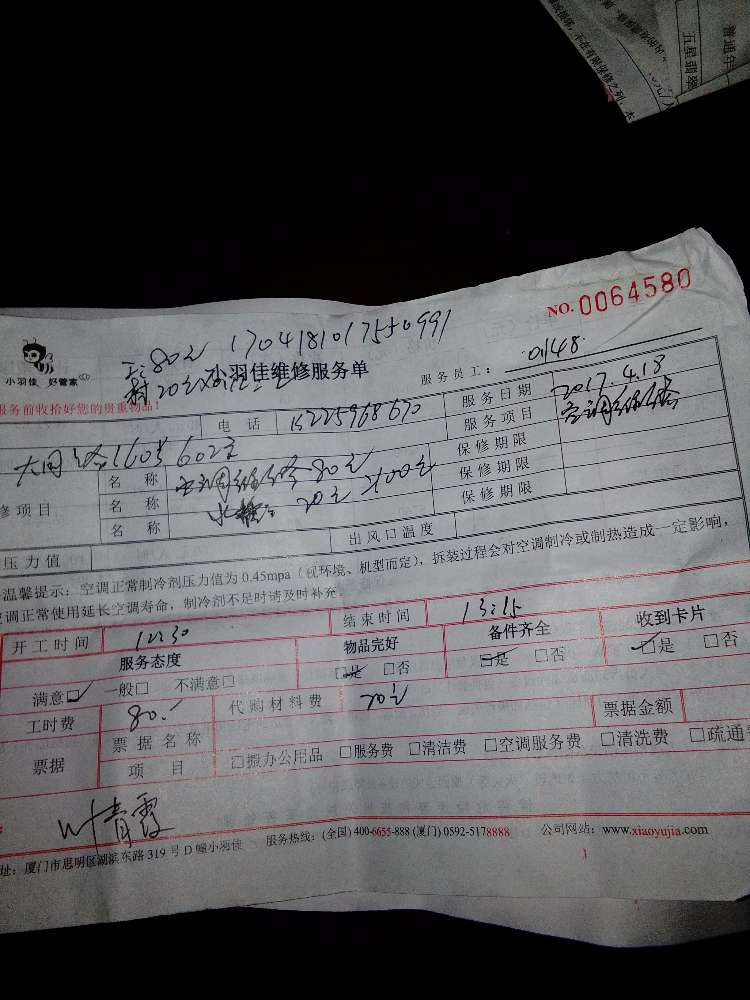 五星翡翠
普通年
NO. 0064580
小羽佳 好管家
80元 1704181017550991
小羽佳维修服务单
服务员工: 0148
服务前收拾好您的贵重物品!
电话 15225968670 服务日期 2017.4.18
服务项目 空调维修
大同路160号602室
保修期限
修项目 名称 空调维修80元 保修期限
名称 20元 100元 保修期限
名称
压力值 出风口温度
温馨提示:空调正常制冷剂压力值为 0.45mpa(视环境、机型而定),拆装过程会对空调制冷或制热造成一定影响,
空调正常使用延长空调寿命,制冷剂不足时请及时补充。
开工时间 12:30 结束时间 13:15
服务态度 物品完好 备件齐全 收到卡片
满意□ 一般□ 不满意□ □是 □否 □是 □否 □是 □否
工时费 80. 代购材料费 20元 票据金额
票据 票据名称 □搬办公用品 □服务费 □清洁费 □空调服务费 □清洗费 □疏通
项目
叶青霞
址:厦门市思明区湖滨东路 319 号 D 幢小羽佳 服务热线:(全国) 400-6655-888 (厦门) 0592-5178888 公司网站:www.xiaoyujia.com